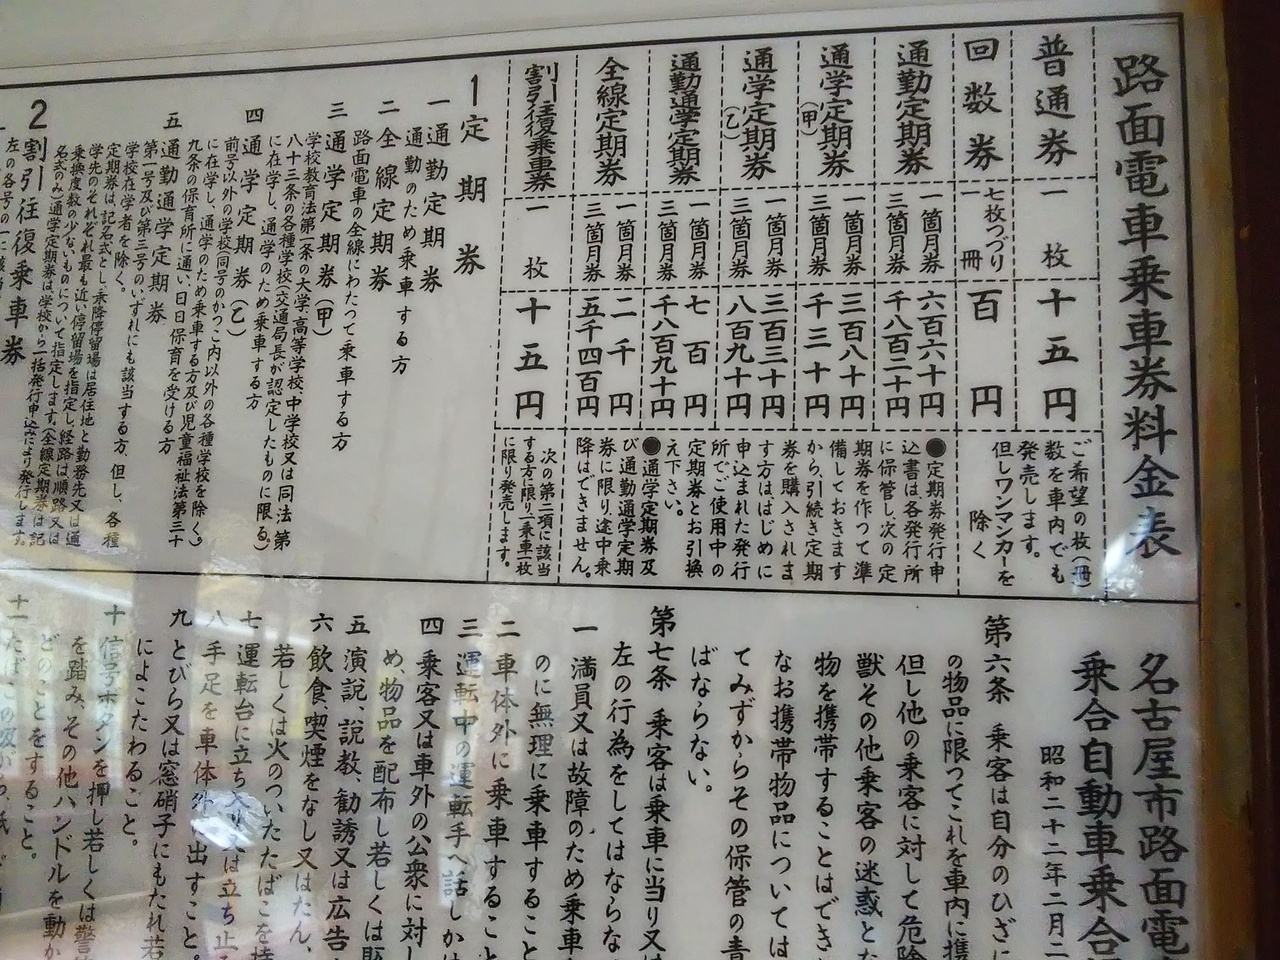 路面電車乗車券料金表
普通券
一枚
十五円
ご希望の枚(冊)
数を車内でも
発売します。
但しワンマンカーを
除く
回数券
七枚つづり
一冊
百円
通勤定期券
一箇月券
六百六十円
三箇月券
千八百二十円
通学定期券
(甲)
一箇月券
三百八十円
三箇月券
千三十円
通学定期券
(乙)
一箇月券
三百三十円
三箇月券
八百九十円
通勤通学定期券
一箇月券
七百円
三箇月券
千八百九十円
全線定期券
一箇月券
二千円
三箇月券
五千四百円
●定期券発行申
込書は各発行所
に保管し次の定
期券を作つて準
備しておきます
から、引続き定期
券を購入されま
す方ははじめに
申込まれた発行
所でご使用中の
定期券とお引換
え下さい。
●通学定期券及
び通勤通学定期
券に限り、途中乗
降はできません。
割引往復乗車券
一枚
十五円
次の第二項に該当
する方に限り一乗車一枚
に限り発売します。
1定期券
一通勤定期券
通勤のため乗車する方
二全線定期券
路面電車の全線にわたって乗車する方
三通学定期券(甲)
学校教育法第一条の大学高等学校中学校又は同法第
八十三条の各種学校(交通局長が認定したものに限る。)
に在学し、通学のため乗車する方
四通学定期券(乙)
前号以外の学校(同号のかつこ内以外の各種学校を除く。)
に在学し、通学のため乗車する方及び児童福祉法第三十
九条の保育所に通い、日日保育を受ける方
五通勤通学定期券
第一号及び第三号のいずれにも該当する方、但し、各種
学校在学者を除く。
定期券は、記名式とし、乗降停留場は居住地と勤務先又は通
学先のそれぞれ最も近い停留場を指定し、経路は順路又は
乗換度数の少ないものについて指定します。(全線定期券は記
名式のみ)通学定期券は学校から一括発行申込みにより発行します。
2割引往復乗車券
左の各号の一に該当
名古屋市路面電
乗合自動車乗合
昭和二十二年二月二
第六条 乗客は自分のひざに
の物品に限つてこれを車内に携
但し他の乗客に対して危険
獣その他乗客の迷惑とな
物を携帯することはできま
なお携帯物品については
てみずからその保管の責
ばならない。
第七条 乗客は乗車に当り又は
左の行為をしてはならな
一 満員又は故障のため乗車
のに無理に乗車すること
二 車体外に乗車すること
三 運転中の運転手へ話しか
四 乗客又は車外の公衆に対し
め、物品を配布し若しくは
五 演説、説教、勧誘又は広告
六 飲食、喫煙をなし又はたん、
若しくは火のついたたばこを持
七 運転台に立ち入り又は立ち止
八 手足を車体外に出すこと。
九 とびら又は窓硝子にもたれ若
によこたわること。
十 信号ボタンを押し若しくは警
を踏み、その他ハンドルを動か
どのことをすること。
十一 たばこの吸